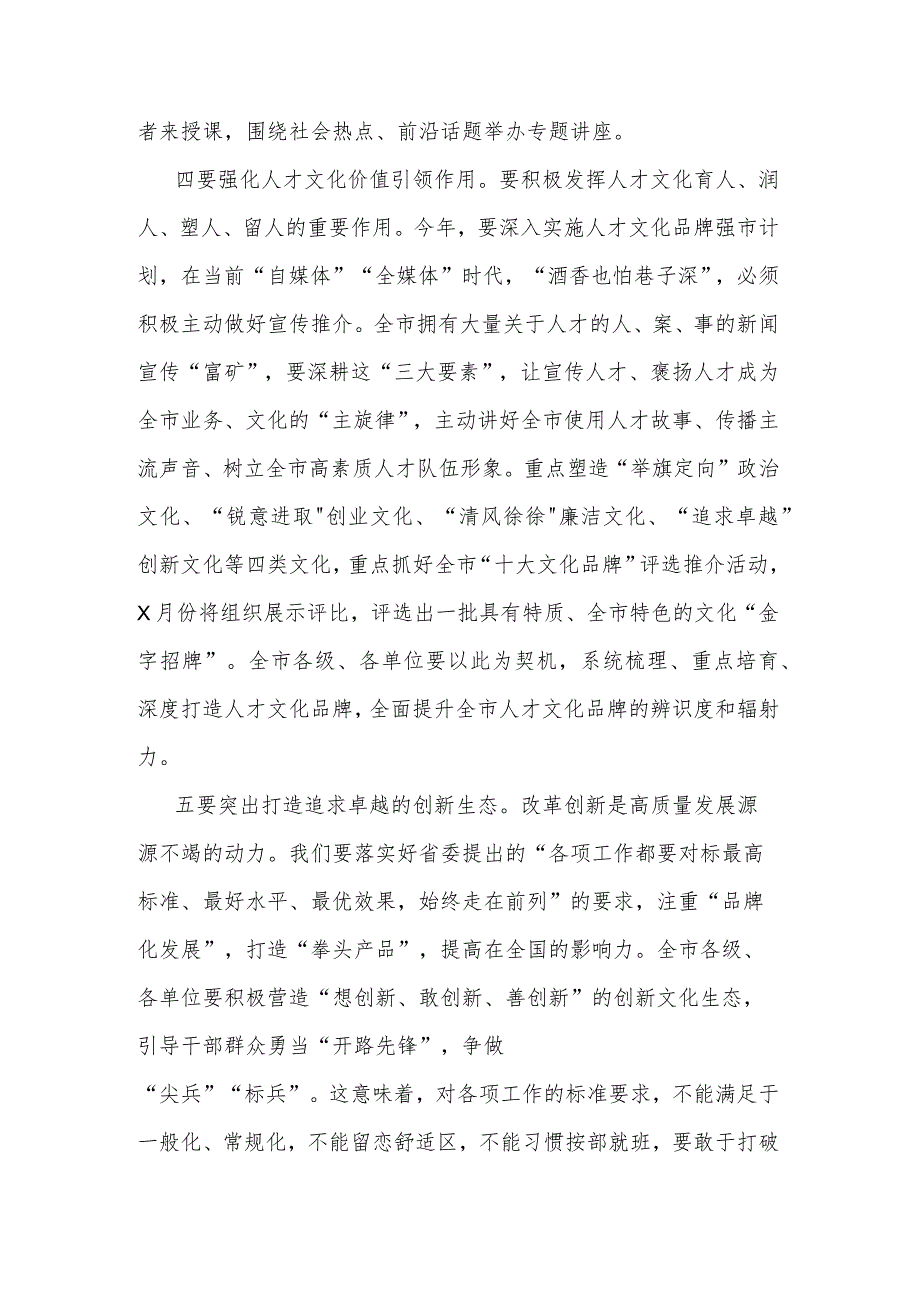 者来授课，围绕社会热点、前沿话题举办专题讲座。
四要强化人才文化价值引领作用。要积极发挥人才文化育人、润
人、塑人、留人的重要作用。今年，要深入实施人才文化品牌强市计
划，在当前“自媒体”“全媒体”时代，“酒香也怕巷子深”，必须
积极主动做好宣传推介。全市拥有大量关于人才的人、案、事的新闻
宣传“富矿”，要深耕这“三大要素”，让宣传人才、褒扬人才成为
全市业务、文化的“主旋律”，主动讲好全市使用人才故事、传播主
流声音、树立全市高素质人才队伍形象。重点塑造“举旗定向”政治
文化、“锐意进取"创业文化、“清风徐徐"廉洁文化、“追求卓越”
创新文化等四类文化，重点抓好全市“十大文化品牌”评选推介活动，
X月份将组织展示评比，评选出一批具有特质、全市特色的文化“金
字招牌”。全市各级、各单位要以此为契机，系统梳理、重点培育、
深度打造人才文化品牌，全面提升全市人才文化品牌的辨识度和辐射
力。
五要突出打造追求卓越的创新生态。改革创新是高质量发展源
源不竭的动力。我们要落实好省委提出的“各项工作都要对标最高
标准、最好水平、最优效果，始终走在前列”的要求，注重“品牌
化发展”，打造“拳头产品”，提高在全国的影响力。全市各级、
各单位要积极营造“想创新、敢创新、善创新”的创新文化生态，
引导干部群众勇当“开路先锋”，争做
“尖兵”“标兵”。这意味着，对各项工作的标准要求，不能满足于
一般化、常规化，不能留恋舒适区，不能习惯按部就班，要敢于打破